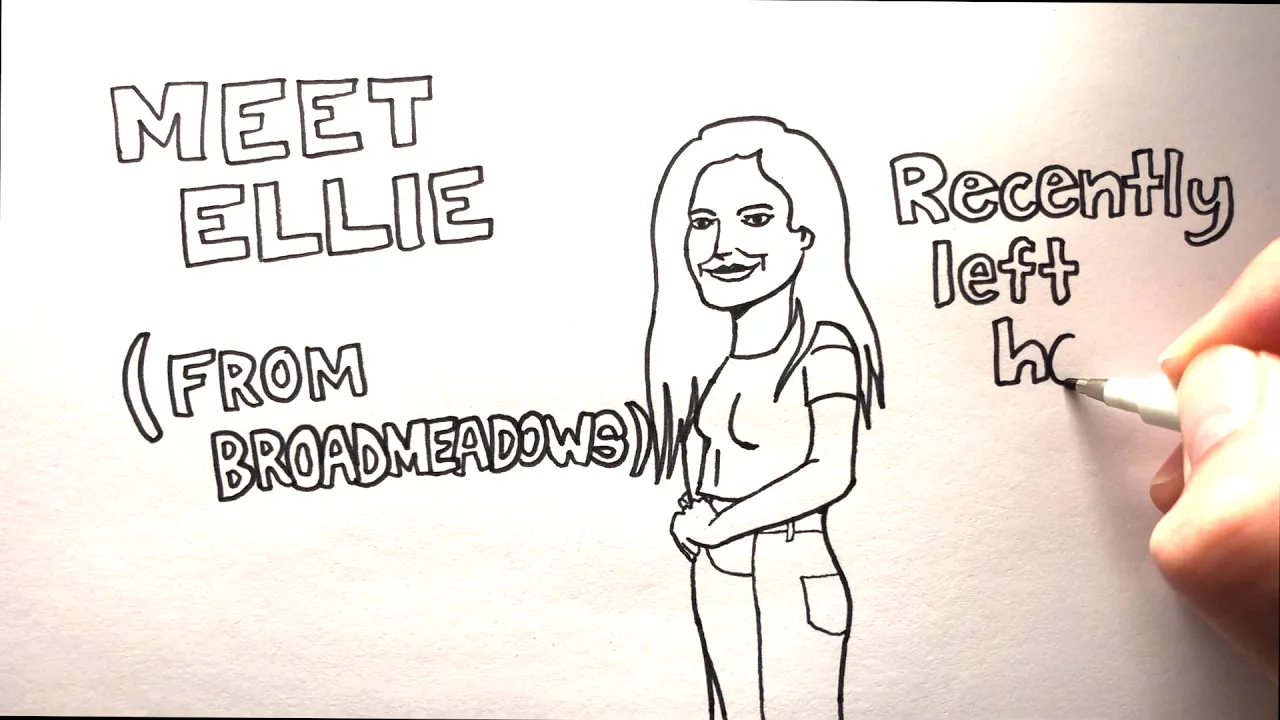 MEET
ELLIE
(FROM
BROADMEADOWS)
Recently
left
ho